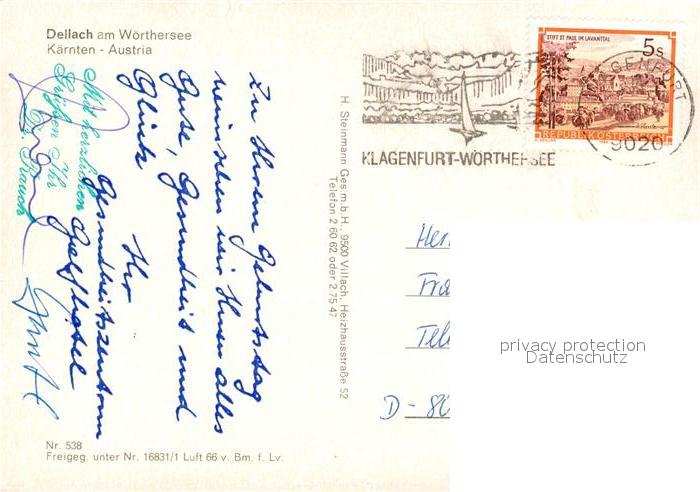 Dellach am Wörthersee
Kärnten - Austria
Zu Ihrem Geburtstag
wünschen wir Ihnen alles
Gute, Gesundheit und
Glück
Ihr
Gesundheitszentrum
Golfhotel
Mit herzlichen
Grüßen Ihr
H. Steinmann Ges.m.b.H., 9500 Villach, Heizhausstraße 52
Telefon 2 60 62 oder 2 75 47
Nr. 538
Freigeg. unter Nr. 16831/1 Luft 66 v. Bm. f. Lv.
KLAGENFURT-WÖRTHERSEE
STIFT ST. PAUL IM LAVANTTAL
5s
REPUBLIK ÖSTERREICH
KLAGENFURT
9020
Her
Fra
Tel
D - 80
privacy protection
Datenschutz